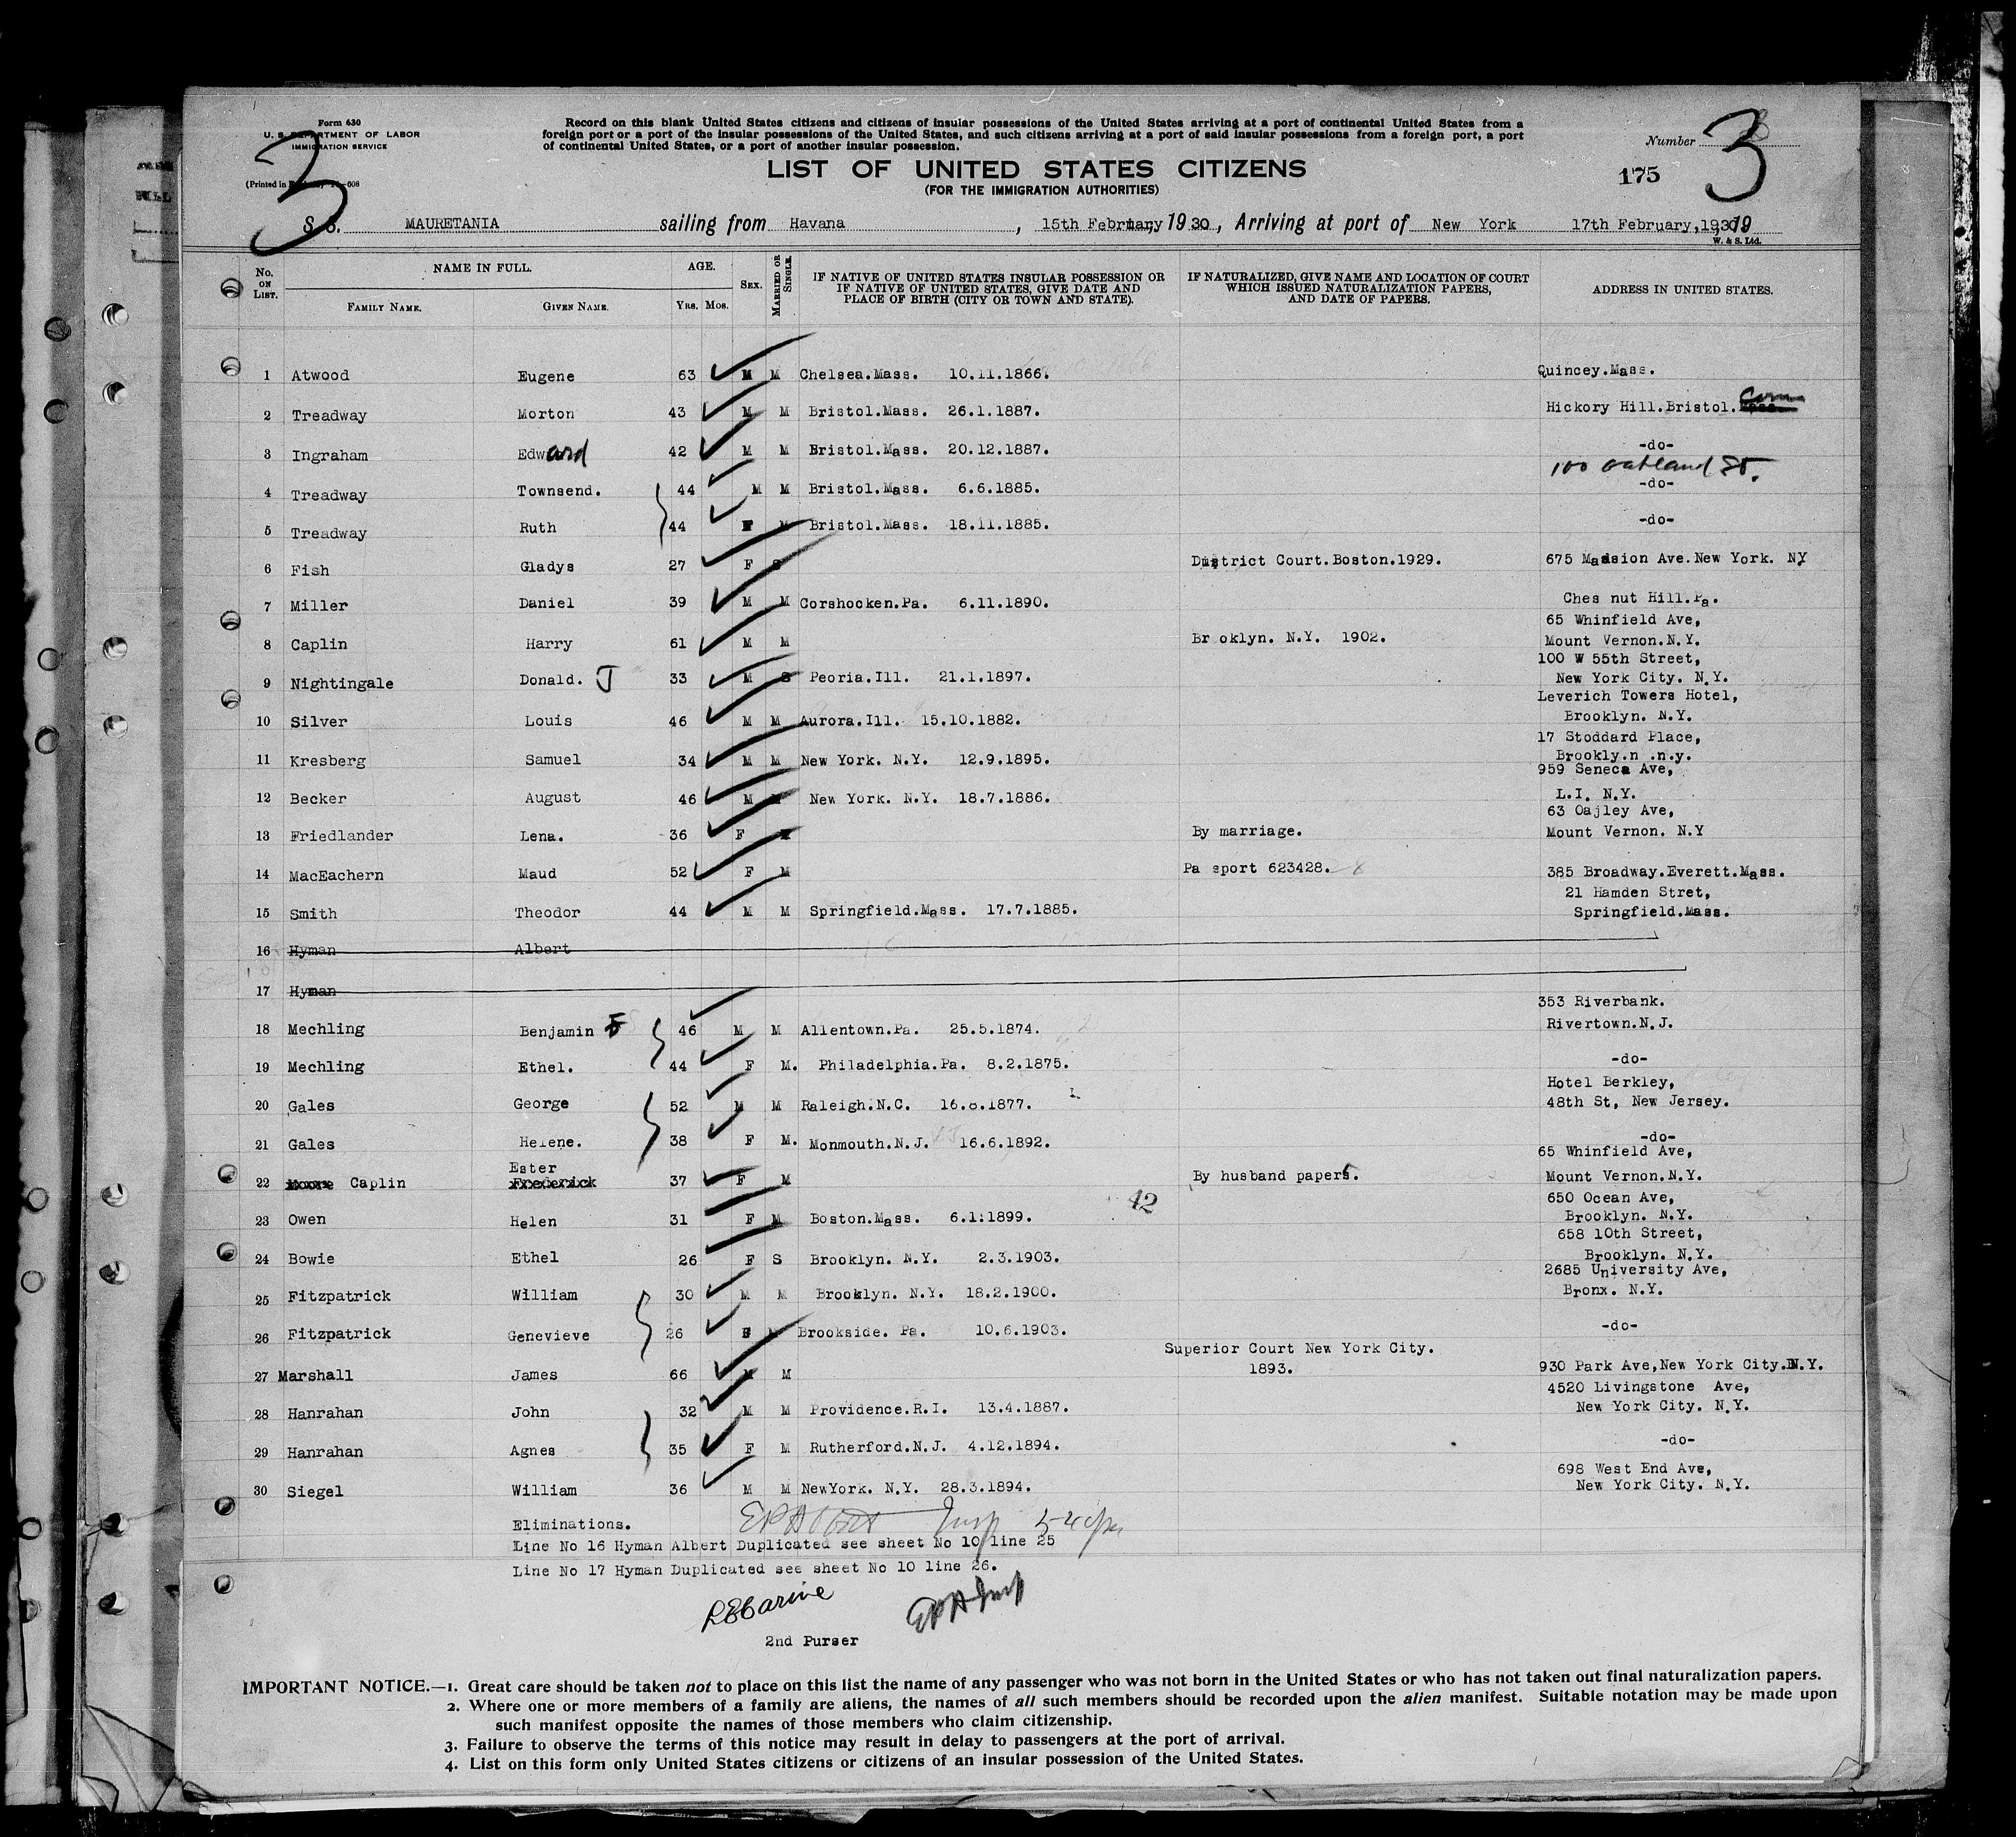 Form 630
U. S. DEPARTMENT OF LABOR
IMMIGRATION SERVICE
Record on this blank United States citizens and citizens of insular possessions of the United States arriving at a port of continental United States from a
foreign port or a port of the insular possessions of the United States, and such citizens arriving at a port of said insular possessions from a foreign port, a port
of continental United States, or a port of another insular possession.
Number 3
3
175
LIST OF UNITED STATES CITIZENS
(FOR THE IMMIGRATION AUTHORITIES)
S. S. MAURETANIA sailing from Havana , 15th February, 1930, Arriving at port of New York 17th February,1930, 19
W. & S. Ltd.
No. ON LIST. NAME IN FULL. AGE. SEX. MARRIED OR SINGLE. IF NATIVE OF UNITED STATES INSULAR POSSESSION OR IF NATIVE OF UNITED STATES, GIVE DATE AND PLACE OF BIRTH (CITY OR TOWN AND STATE). IF NATURALIZED, GIVE NAME AND LOCATION OF COURT WHICH ISSUED NATURALIZATION PAPERS, AND DATE OF PAPERS. ADDRESS IN UNITED STATES.
FAMILY NAME. GIVEN NAME. YRS. MOS.
1 Atwood Eugene 63 M M Chelsea.Mass. 10.11.1866. Quincey.Mass.
2 Treadway Morton 43 M M Bristol.Mass. 26.1.1887. Hickory Hill.Bristol. Mass Conn
3 Ingraham Edward 42 M M Bristol.Mass. 20.12.1887. -do-
4 Treadway Townsend. 44 M M Bristol.Mass. 6.6.1885. 100 Oakland St. -do-
5 Treadway Ruth 44 F M Bristol.Mass. 18.11.1885. -do-
6 Fish Gladys 27 F S District Court.Boston.1929. 675 Madsion Ave.New York. NY
7 Miller Daniel 39 M M Corshocken.Pa. 6.11.1890. Ches nut Hill.Pa.
8 Caplin Harry 61 M M Br oklyn. N.Y. 1902. 65 Whinfield Ave, Mount Vernon.N.Y.
9 Nightingale Donald. J 33 M S Peoria.Ill. 21.1.1897. 100 W 55th Street, New York City. N.Y.
10 Silver Louis 46 M M Aurora.Ill. 15.10.1882. Leverich Towers Hotel, Brooklyn. N.Y.
11 Kresberg Samuel 34 M M New York. N.Y. 12.9.1895. 17 Stoddard Place, Brookly.n .n.y.
12 Becker August 46 M M New York. N.Y. 18.7.1886. 959 Seneca Ave, L.I. N.Y.
13 Friedlander Lena. 36 F M By marriage. 63 Oajley Ave, Mount Vernon. N.Y
14 MacEachern Maud 52 F M Pa sport 623428. 385 Broadway.Everett.Mass.
15 Smith Theodor 44 M M Springfield.Mass. 17.7.1885. 21 Hamden Stret, Springfield.Mass.
16 Hyman Albert
17 Hyman
18 Mechling Benjamin F 46 M M Allentown.Pa. 25.5.1874. 353 Riverbank. Rivertown.N.J.
19 Mechling Ethel. 44 F M. Philadelphia.Pa. 8.2.1875. -do-
20 Gales George 52 M M Raleigh.N.C. 16.8.1877. Hotel Berkley, 48th St, New Jersey.
21 Gales Helene. 38 F M. Monmouth.N.J. 16.6.1892. -do-
22 Moore Caplin Ester Frederick 37 F M By husband papers. 65 Whinfield Ave, Mount Vernon.N.Y.
23 Owen Helen 31 F M Boston.Mass. 6.1.1899. 42 650 Ocean Ave, Brooklyn. N.Y.
24 Bowie Ethel 26 F S Brooklyn. N.Y. 2.3.1903. 658 10th Street, Brooklyn. N.Y.
25 Fitzpatrick William 30 M M Brooklyn. N.Y. 18.2.1900. 2685 University Ave, Bronx. N.Y.
26 Fitzpatrick Genevieve 26 F M Brookside. Pa. 10.6.1903. -do-
27 Marshall James 66 M M Superior Court New York City. 1893. 930 Park Ave,New York City.N.Y.
28 Hanrahan John 32 M M Providence.R.I. 13.4.1887. 4520 Livingstone Ave, New York City. N.Y.
29 Hanrahan Agnes 35 F M Rutherford.N.J. 4.12.1894. -do-
30 Siegel William 36 M M NewYork. N.Y. 28.3.1894. 698 West End Ave, New York City. N.Y.
Eliminations.
Line No 16 Hyman Albert Duplicated see sheet No 10 line 25
Line No 17 Hyman Duplicated see sheet No 10 line 26.
2nd Purser
IMPORTANT NOTICE.—1. Great care should be taken not to place on this list the name of any passenger who was not born in the United States or who has not taken out final naturalization papers.
2. Where one or more members of a family are aliens, the names of all such members should be recorded upon the alien manifest. Suitable notation may be made upon
such manifest opposite the names of those members who claim citizenship.
3. Failure to observe the terms of this notice may result in delay to passengers at the port of arrival.
4. List on this form only United States citizens or citizens of an insular possession of the United States.